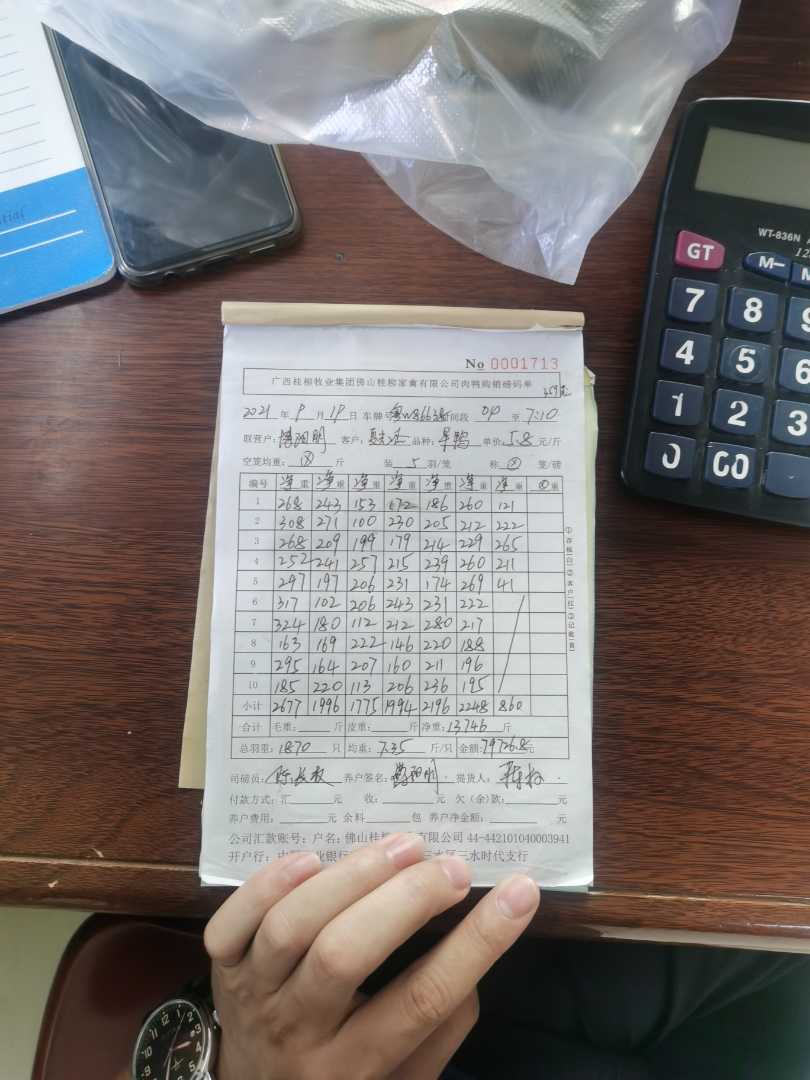 tial
WT-836N
12
GT
M-
M
7
8
9
4
5
6
1
2
3
0
00
No 0001713
广西桂柳牧业集团佛山桂柳家禽有限公司肉鸭购销磅码单
2021 年 9 月 19 日 车牌号 时间段 至 7:10
联营户: 阳明 客户: 品种: 鸭 单价: 5.8 元/斤
空笼均重: ⊗ 斤 装 5 羽/笼 称 笼/磅
编号 净重 净重 净重 净重 净重 净重 净重 重
1 268 243 153 172 186 260 121
2 308 271 100 230 205 212 222
3 268 209 199 179 214 229 265
4 252 241 257 215 239 260 211
5 297 197 206 231 174 269 41
6 317 102 206 243 231 222
7 324 180 112 212 280 217
8 163 169 222 146 220 188
9 295 164 207 160 211 196
10 185 220 113 206 236 195
小计 2677 1996 1775 1994 2196 2248 860
合计 毛重: 斤 皮重: 斤 净重: 13746 斤
总羽重: 1870 只 均重: 7.35 斤/只 金额: 79726.8 元
司磅员: 养户签名: 阳明 提货人:
付款方式: 汇 元 收: 元 欠(余)款: 元
养户费用: 元 余料 包 养户净金额: 元
公司汇款账号: 户名: 佛山桂 有限公司 44-442101040003941
开户行: 业银行 三水时代支行